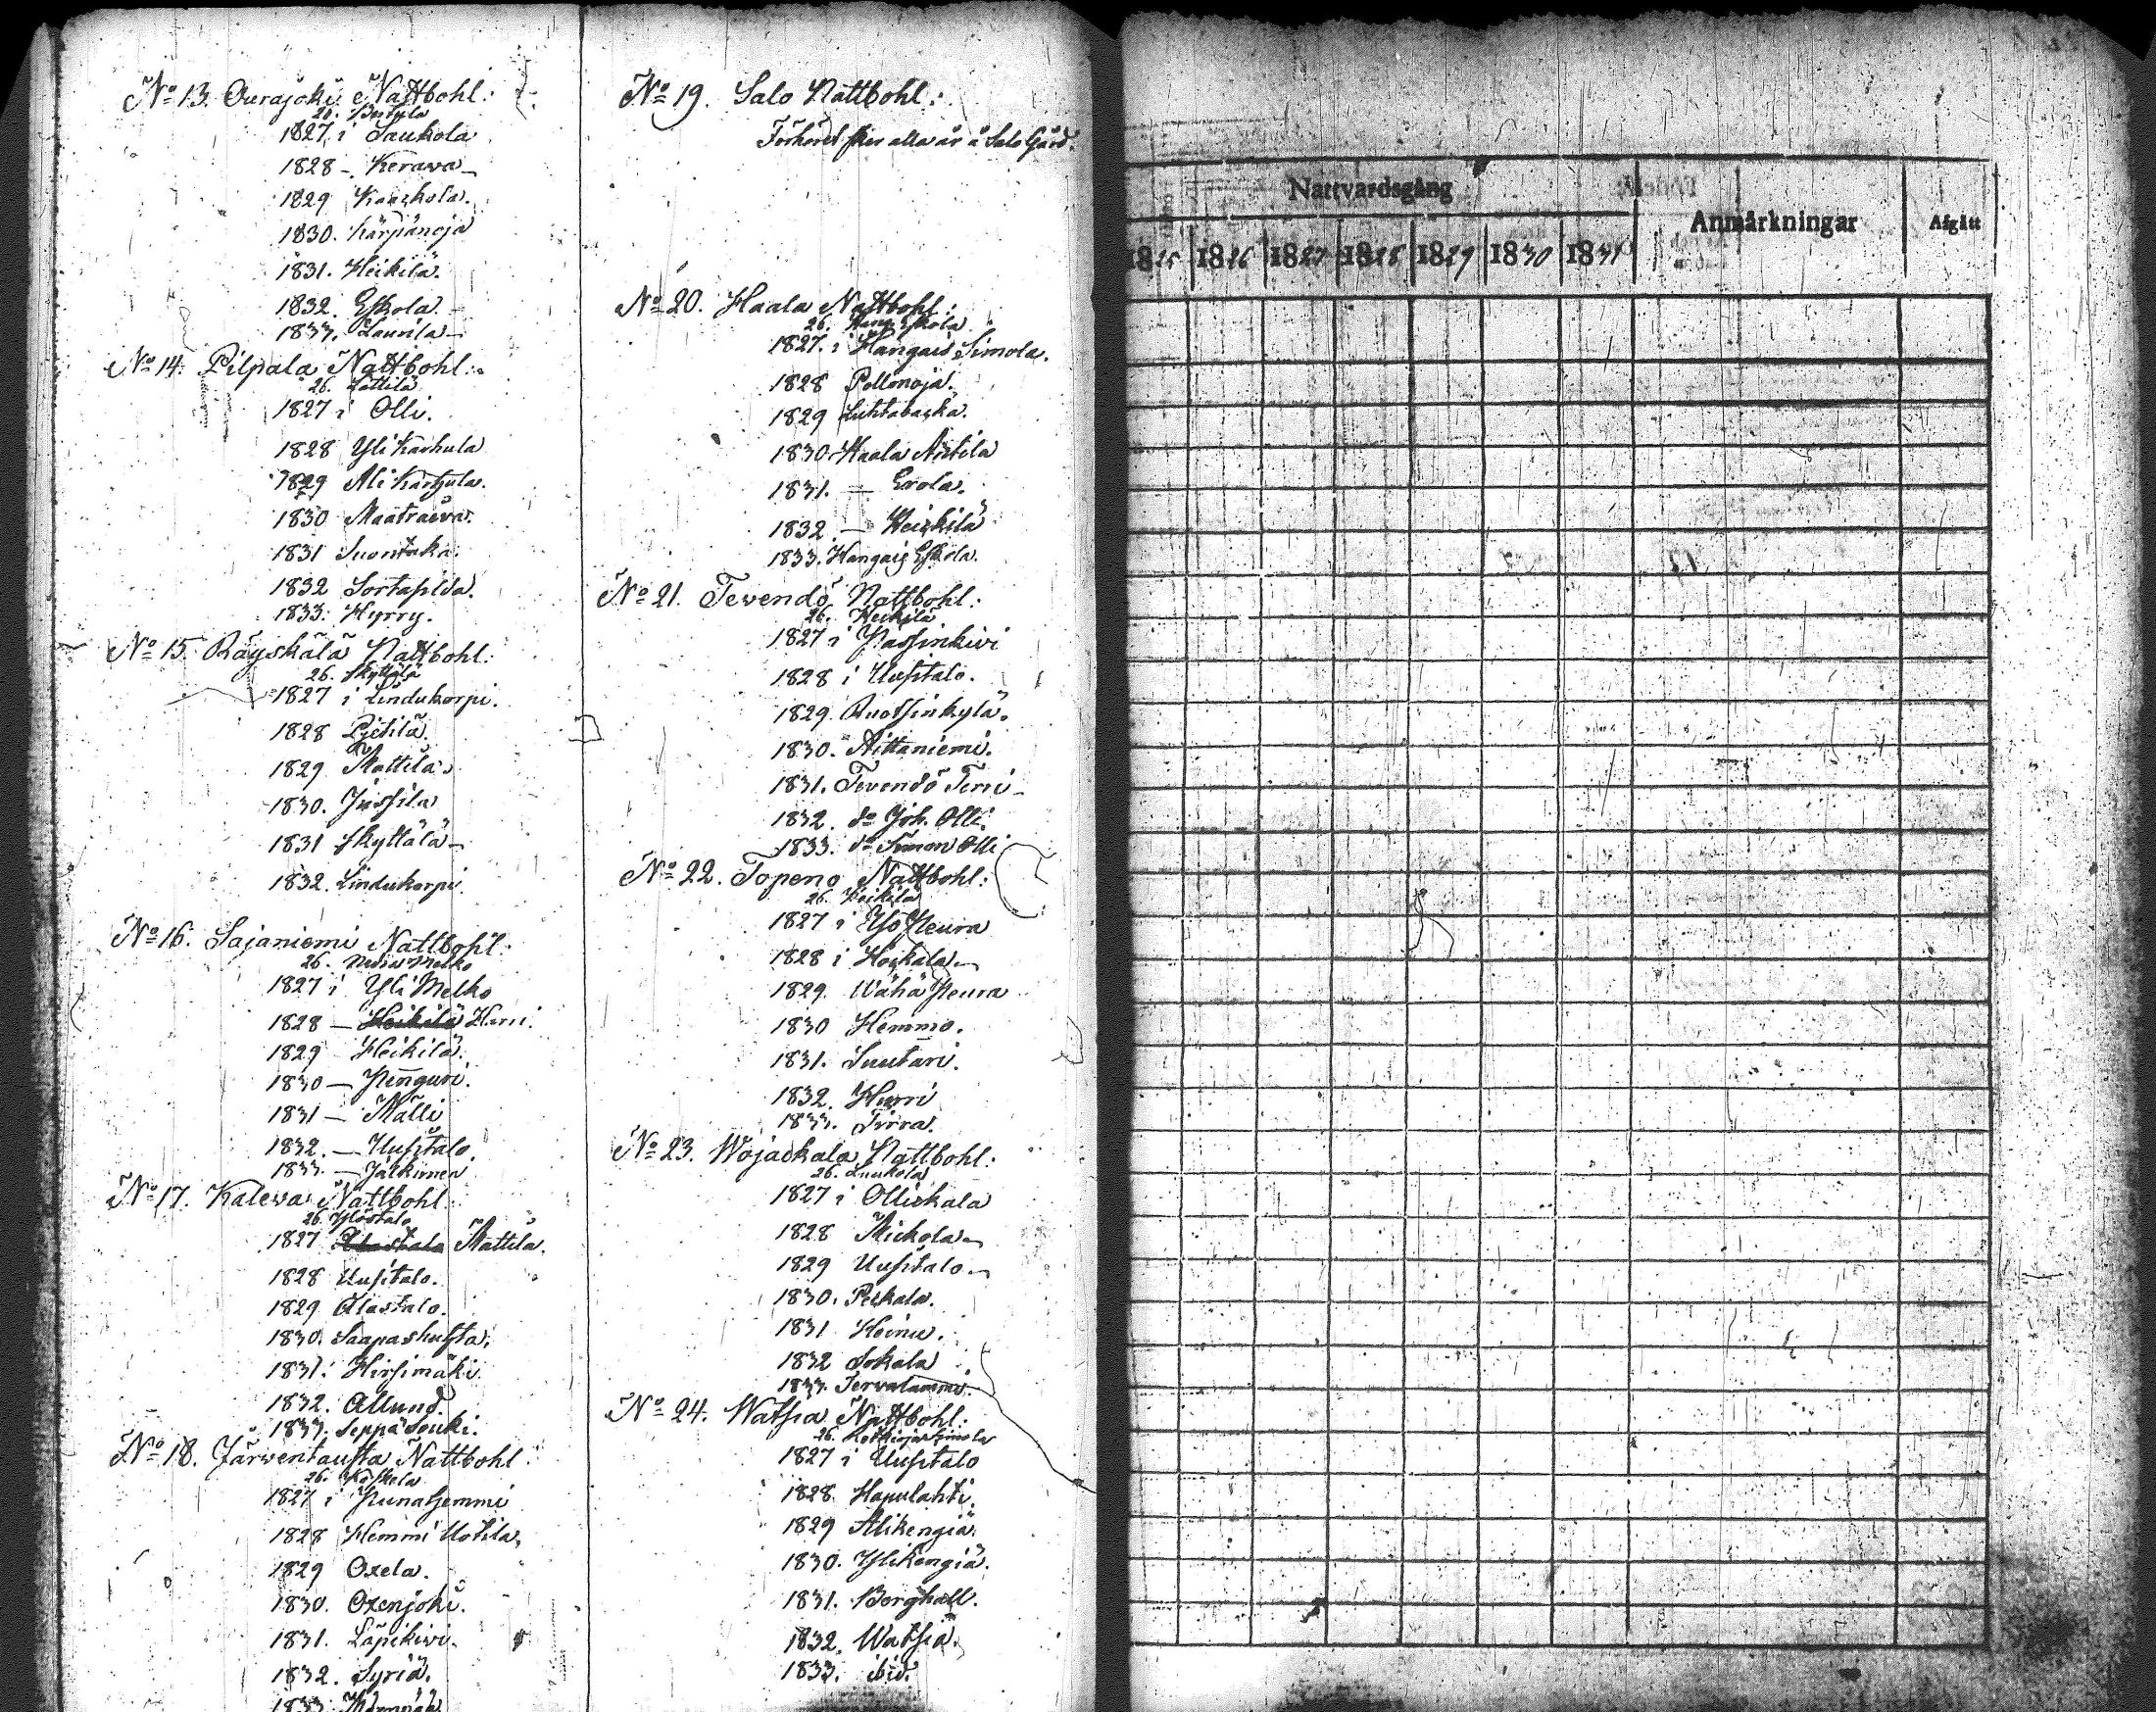 No 13. Ourajoki Nattbohl:
1827 i Saukola
1828 - Kerawa
1829
1830. Kärpänoja
1831. Heikilä
1832. Eskola
1833. Laurila
No 14. Pilpala Nattbohl:
26. Lottila
1827 i Olli.
1828 Yli Karhula
1829 Ali Karhula.
1830
1831 Suontaka.
1832
1833. Hyrry.
No 15. Räyskälä Nattbohl:
26. Skyttälä
1827 i Lindukorpi.
1828
1829 Mattila
1830. Jussila
1831 Skyttälä
1832. Lindukorpi.
No 16. Sajaniemi Nattbohl:
26.
1827 i Yli Melko
1828 - Heikilä
1829 Heikilä.
1830 - Penguri.
1831 - Mälli
1832. - Uusitalo.
1833. - Jälkimen
No 17. Kaleva Nattbohl:
26.
1827 Alastalo Mattila.
1828 Uusitalo.
1829 Alastalo.
1830.
1831. Hirsimäki
1832. Allund.
1833. Seppä Souki.
No 18. Järwentausta Nattbohl:
26. Koskela
1827 i Punahemmi
1828 Hemmi Uotila,
1829 Oxela.
1830. Oxenjoki.
1831. Läpikivi.
1832. Syriä.
1833
No 19. Salo Nattbohl:
Förhöret sker alla år å Salo Gård.
No 20. Haala Nattbohl:
26. Hang. Eskola
1827. i Hangais Simola.
1828 Pollonoja.
1829
1830 Haala Antila
1831. - Erola.
1832. - Heickilä
1833. Hangais Eskola.
No 21. Tevendö Nattbohl:
26. Heikilä
1827 i Passinkivi
1828 i Uusitalo.
1829. Ruotsinkylä.
1830. Aittaniemi.
1831. Tevendö Terri
1832. do Joh. Olli.
1833. do Simon Olli
No 22. Topeno Nattbohl:
26. Heikilä
1827 i Iso Peura
1828 i Höckala
1829. Wähä Peura
1830 Hemmo.
1831. Suutari.
1832. Hurri
1833. Tirra.
No 23. Wojackala Nattbohl:
26. Luukola
1827 i Ollickala
1828 Mickola
1829 Uusitalo
1830. Peckala.
1831 Heinu.
1832 Sokala
1833. Tervalammi.
No 24. Watsia Nattbohl:
26.
1827 i Uusitalo
1828. Hapulahti.
1829 Alikengiä.
1830. Ylikengiä.
1831. Borghall.
1832. Watsiä.
1833. ibid.
Nattvardsgång
Anmärkningar
Afgått
1825 1826 1827 1828 1829 1830 1831